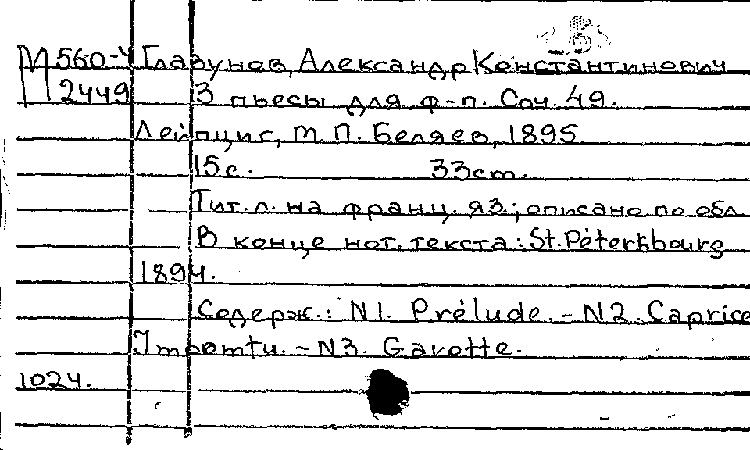 М 560-4 Глазунов, Александр Константинович
2449 3 пьесы для ф-п. Соч. 49.
Лейпциг, М.П. Беляев, 1895
15с. 33cm.
Тит.л. на франц. яз; описано по обл
В конце нот. текста: St. Péterbourg
1894.
Содерж.: N1. Prélude. - N2. Caprice
- N3. Gavotte.
1024.